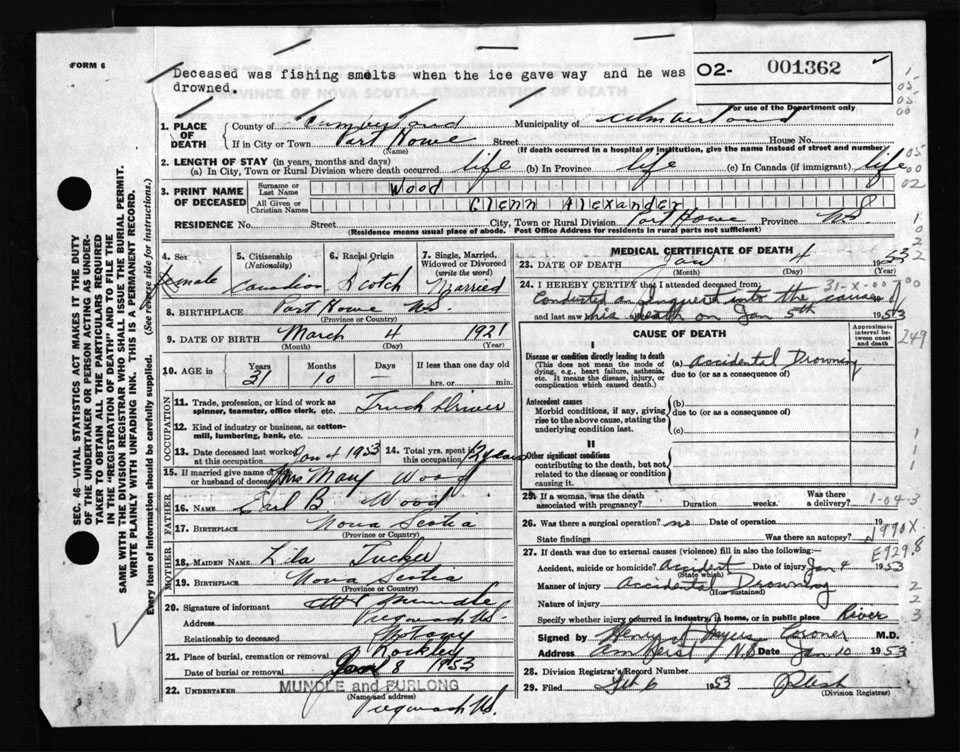 FORM 6
Deceased was fishing smelts when the ice gave way and he was
drowned.
O2- 001362
PROVINCE OF NOVA SCOTIA—REGISTRATION OF DEATH
For use of the Department only
1. PLACE OF DEATH County of Cumberland Municipality of Cumberland
If in City or Town Port Howe Street House No.
(Name) (If death occurred in a hospital or institution, give the name instead of street and number)
2. LENGTH OF STAY (in years, months and days)
(a) In City, Town or Rural Division where death occurred life (b) In Province life (c) In Canada (if immigrant) life
3. PRINT NAME OF DECEASED Surname or Last Name Wood
All Given or Christian Names Glenn Alexander
RESIDENCE No. Street City, Town or Rural Division Port Howe Province N.S.
(Residence means usual place of abode. Post Office Address for residents in rural parts not sufficient)
SEC. 46—VITAL STATISTICS ACT MAKES IT THE DUTY
OF THE UNDERTAKER OR PERSON ACTING AS UNDER-
TAKER TO OBTAIN ALL THE PARTICULARS REQUIRED
IN THE "REGISTRATION OF DEATH" AND TO FILE THE
SAME WITH THE DIVISION REGISTRAR WHO SHALL ISSUE THE BURIAL PERMIT.
WRITE PLAINLY WITH UNFADING INK. THIS IS A PERMANENT RECORD.
Every item of information should be carefully supplied. (See reverse side for instructions.)
4. Sex 5. Citizenship (Nationality) 6. Racial Origin 7. Single, Married, Widowed or Divorced (write the word)
male Canadian Scotch Married
8. BIRTHPLACE Port Howe N.S.
(Province or Country)
9. DATE OF BIRTH March 4 1921
(Month) (Day) (Year)
10. AGE IN Years Months Days If less than one day
31 10 — hrs. or min.
OCCUPATION
11. Trade, profession, or kind of work as spinner, teamster, office clerk, etc. Truck Driver
12. Kind of industry or business, as cotton-mill, lumbering, bank, etc.
13. Date deceased last worked at this occupation Jan 4 1953 14. Total yrs. spent in this occupation 12 years
15. If married give name of wife or husband of deceased Mrs Mary Wood
FATHER
16. NAME Earl B Wood
17. BIRTHPLACE Nova Scotia
(Province or Country)
MOTHER
18. MAIDEN NAME Lila Tucker
19. BIRTHPLACE Nova Scotia
(Province or Country)
20. Signature of informant Mundle
Address Pugwash N.S.
Relationship to deceased
21. Place of burial, cremation or removal Rockley
Date of burial or removal Jan 8 1953
22. UNDERTAKER MUNDLE and FURLONG
(Name and address)
Pugwash N.S.
MEDICAL CERTIFICATE OF DEATH
23. DATE OF DEATH Jan 4 1953
(Month) (Day)
24. I HEREBY CERTIFY that I attended deceased from: 31-X-00
Conducted an inquest into the cause of
and last saw his death on Jan 5th 1953
CAUSE OF DEATH
Approximate interval between onset and death
I
Disease or condition directly leading to death (a) Accidental Drowning
(This does not mean the mode of dying, e.g., heart failure, asthenia, etc. It means the disease, injury, or complication which caused death.)
due to (or as a consequence of)
Antecedent causes
Morbid conditions, if any, giving rise to the above cause, stating the underlying condition last.
(b)
due to (or as a consequence of)
(c)
II
Other significant conditions
contributing to the death, but not related to the disease or condition causing it.
25. If a woman, was the death associated with pregnancy? Duration weeks. Was there a delivery? 1-04-3
26. Was there a surgical operation? no Date of operation 19
State findings Was there an autopsy?
N990X
27. If death was due to external causes (violence) fill in also the following:— E929.8
Accident, suicide or homicide? Accident Date of injury Jan 4 1953
(State which)
Manner of injury Accidental Drowning
(How sustained)
Nature of injury
Specify whether injury occurred in industry, in home, or in public place River
Signed by Coroner M.D.
Address Amherst N.S. Date Jan 10 1953
28. Division Registrar's Record Number
29. Filed Feb 6 1953
(Division Registrar)
249